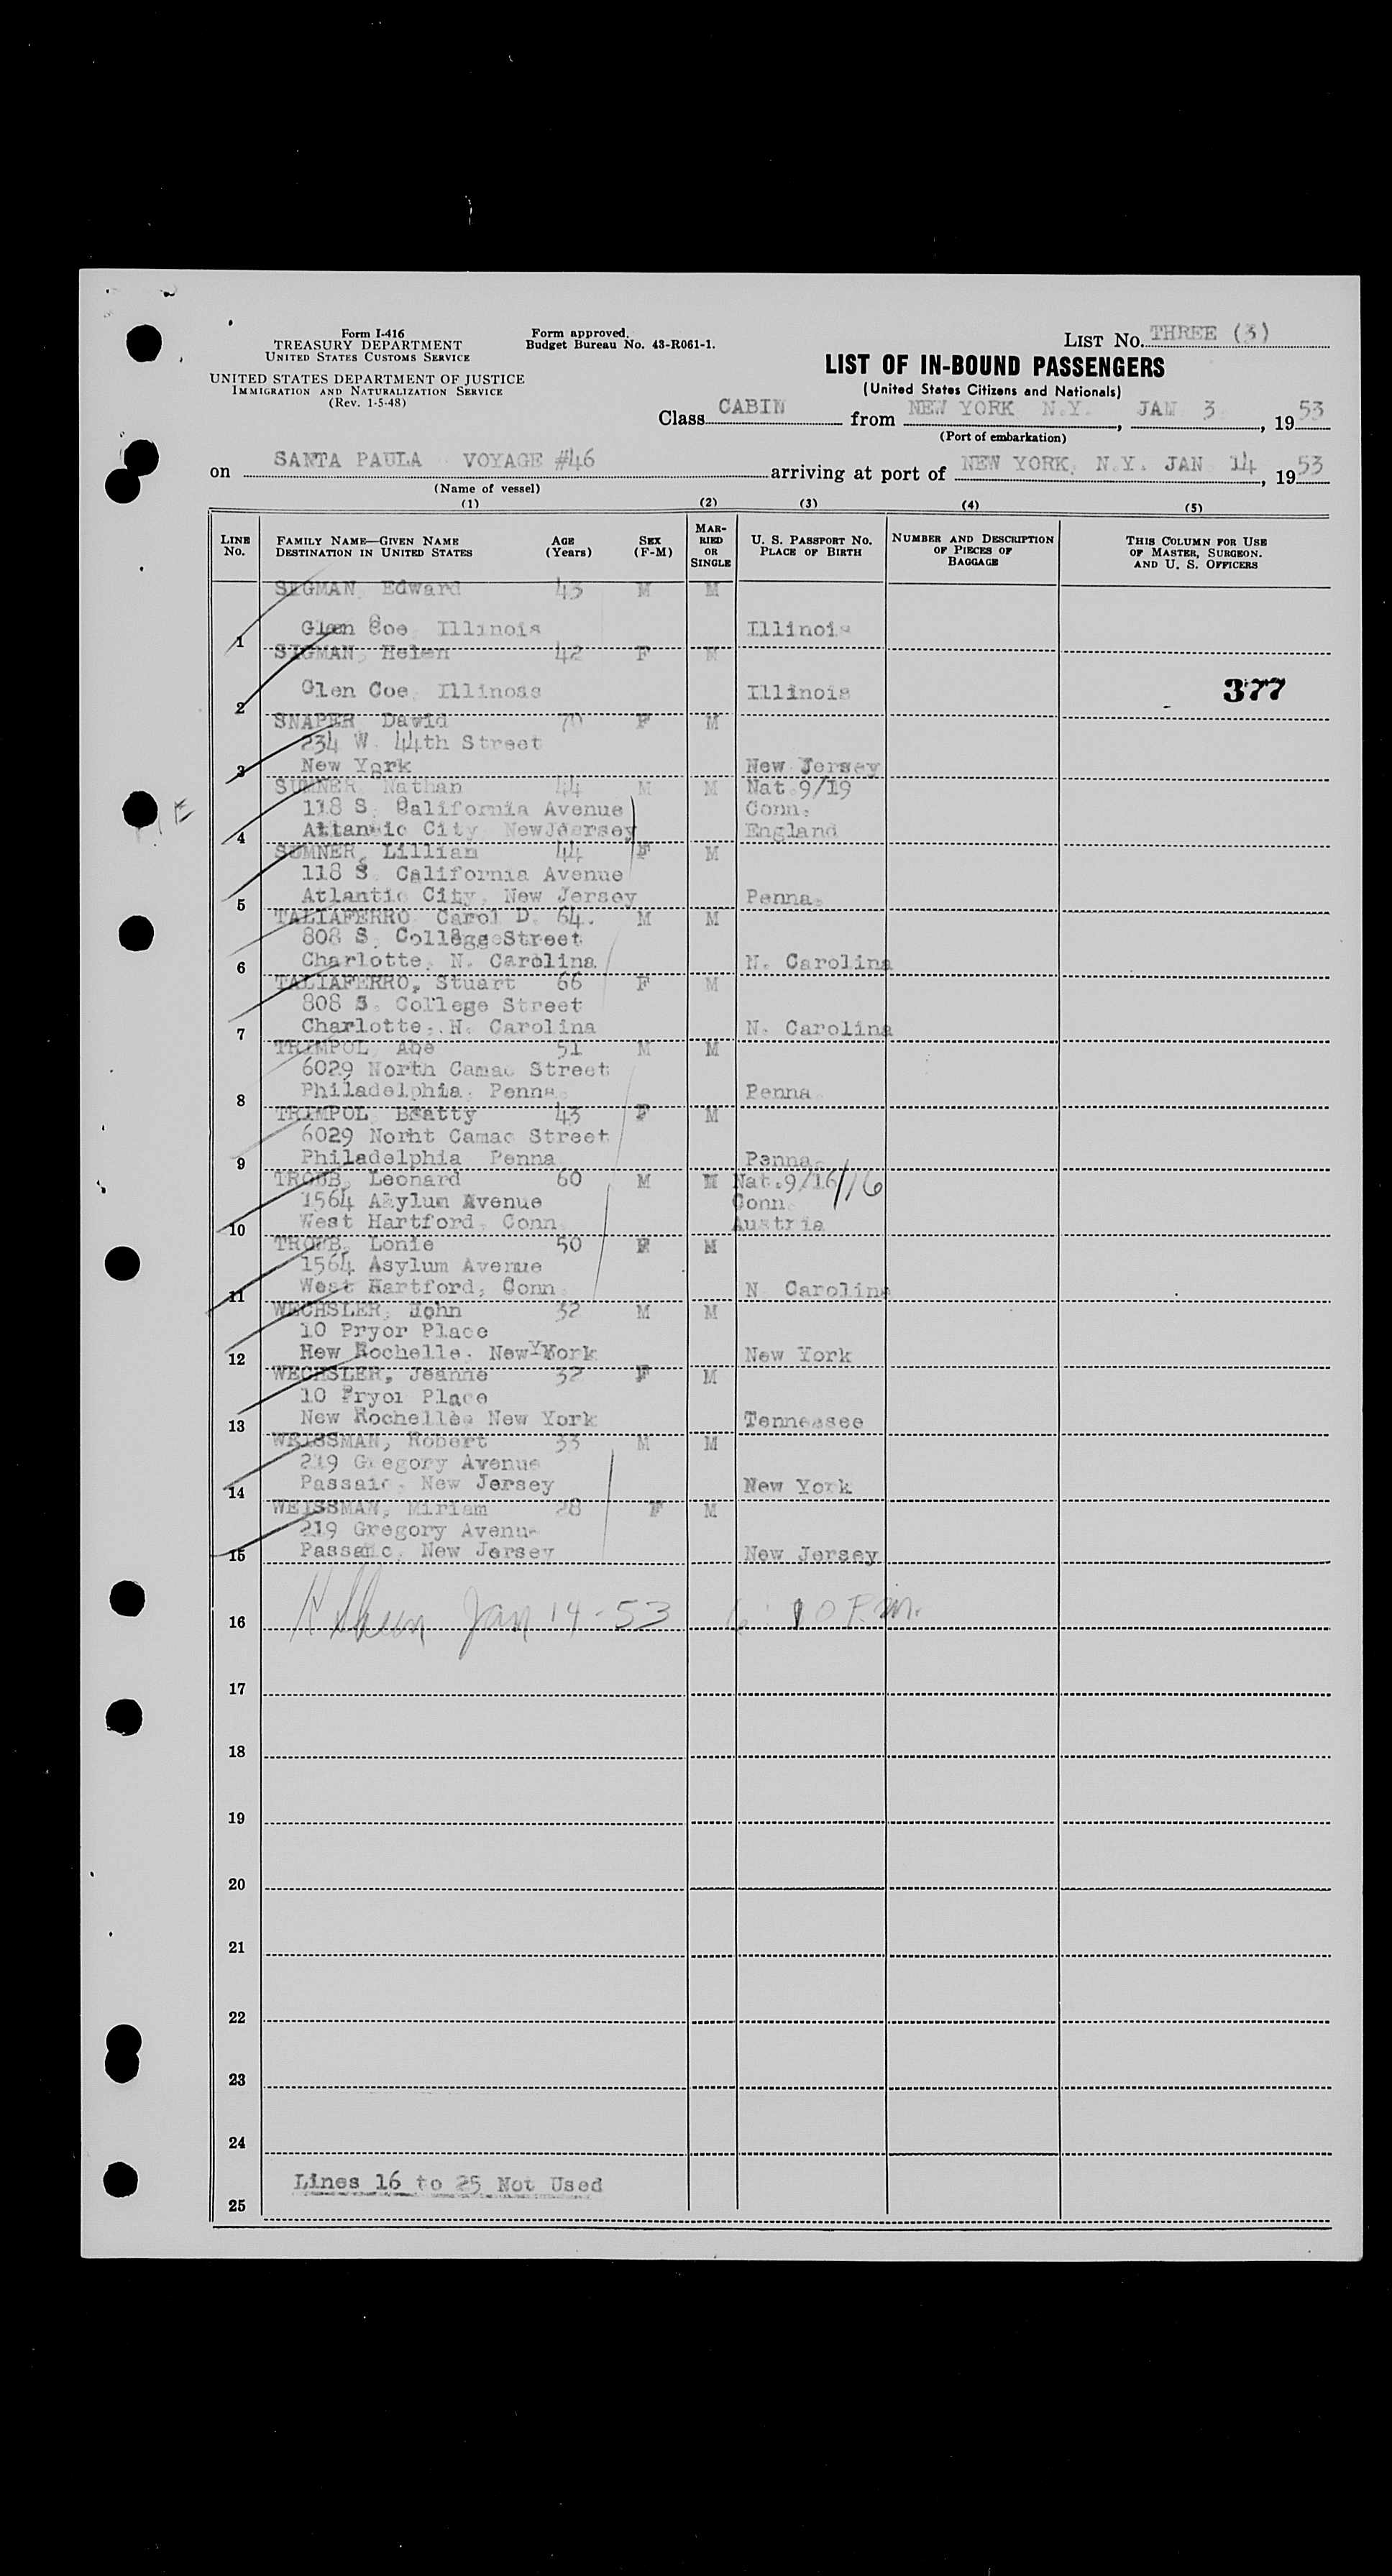 Form I-416
TREASURY DEPARTMENT
UNITED STATES CUSTOMS SERVICE
UNITED STATES DEPARTMENT OF JUSTICE
IMMIGRATION AND NATURALIZATION SERVICE
(Rev. 1-5-48)
Form approved.
Budget Bureau No. 43-R061-1.
LIST No. THREE (3)
LIST OF IN-BOUND PASSENGERS
(United States Citizens and Nationals)
Class CABIN from NEW YORK N.Y., JAN 3, 1953
(Port of embarkation)
on SANTA PAULA VOYAGE #46 arriving at port of NEW YORK, N.Y. JAN 14, 1953
(Name of vessel)
(1) (2) (3) (4) (5)
LINE No. FAMILY NAME—GIVEN NAME DESTINATION IN UNITED STATES AGE (Years) SEX (F-M) MARRIED OR SINGLE U. S. PASSPORT NO. PLACE OF BIRTH NUMBER AND DESCRIPTION OF PIECES OF BAGGAGE THIS COLUMN FOR USE OF MASTER, SURGEON, AND U. S. OFFICERS
SEGMAN, Edward 43 M M
1 Glen Coe Illinois Illinois
SIGMAN, Helen 42 F M
2 Glen Coe, Illinoss Illinois 377
SNAPER David 70 F M
234 W. 44th Street
3 New York New Jersey
SUMNER, Nathan 44 M M Nat.9/19
118 S. California Avenue Conn.
4 Attantic City NewJersey England
SUMNER, Lillian 44 F M
118 S. California Avenue
5 Atlantic City, New Jersey Penna.
TALIAFERRO Carol D. 64. M M
808 S. College Street
6 Charlotte, N. Carolina N. Carolina
TALIAFERRO, Stuart 66 F M
808 S. College Street
7 Charlotte, N. Carolina N. Carolina
TRIMPOL, Abe 51 M M
6029 North Camac Street
8 Philadelphia, Penna. Penna
TRIMPOL, Beatty 43 F M
6029 Norht Camac Street
9 Philadelphia Penna Penna.
TROUB, Leonard 60 M M Nat.9/16/16
1564 Asylum Avenue Conn
10 West Hartford, Conn. Austria
TROUB, Lonie 50 F M
1564 Asylum Avenue
11 West Hartford, Conn. N Carolina
WECHSLER, John 32 M M
10 Pryor Place
12 Hew Rochelle. New York New York
WECHSLER, Jeanne 32 F M
10 Pryor Place
13 New Rochelle, New York Tennessee
WEISSMAN, Robert 33 M M
219 Gregory Avenue
14 Passaic, New Jersey New York
WEISSMAN, Miriam 28 F M
219 Gregory Avenue
15 Passaic, New Jersey New Jersey
16 Jan 14-53 P.m.
17
18
19
20
21
22
23
24
Lines 16 to 25 Not Used
25